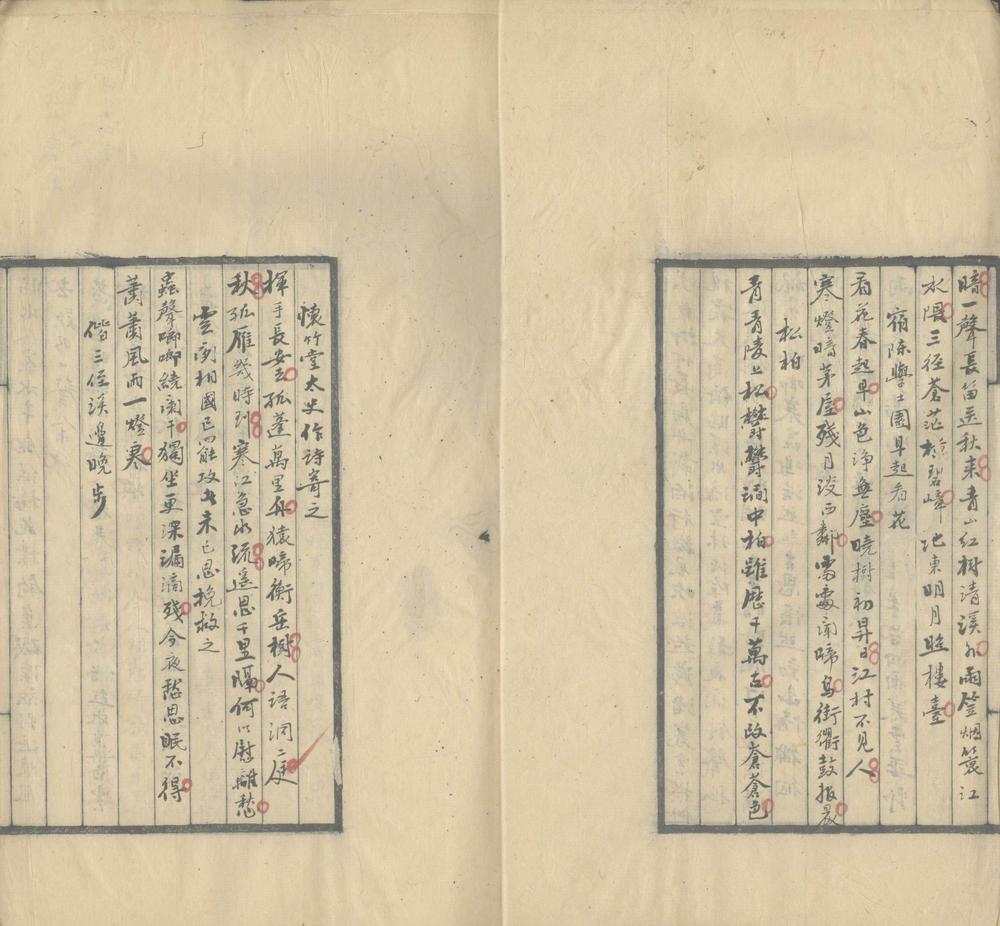 暗一聲長笛送秋來青山紅樹清溪外雨笠烟簑江
水隈三徑蒼茫於碧嶂池東明月照樓臺
宿陈學士園早起看花
看花春起早山色淨無塵曉樹初昇日江村不見人
寒燈暗茅屋殘月没西鄰處處聞啼鳥街衢鼓报晨
松柏
青青陵上松鬱鬱澗中柏雖歷千萬古不改蒼蒼色
懷竹堂太史作詩寄之
揮手長安去孤蓬萬里舟猿啼衡岳樹人語洞二庭
秋孤雁幾時到寒江急水流遥思千里隔何以慰離愁
雲間相國已罷政老未已思挽救之
蟲聲唧唧繞闌干獨坐更深漏滴殘今夜愁思眠不得
蕭蕭風雨一燈寒
偕三侄溪邊晚步